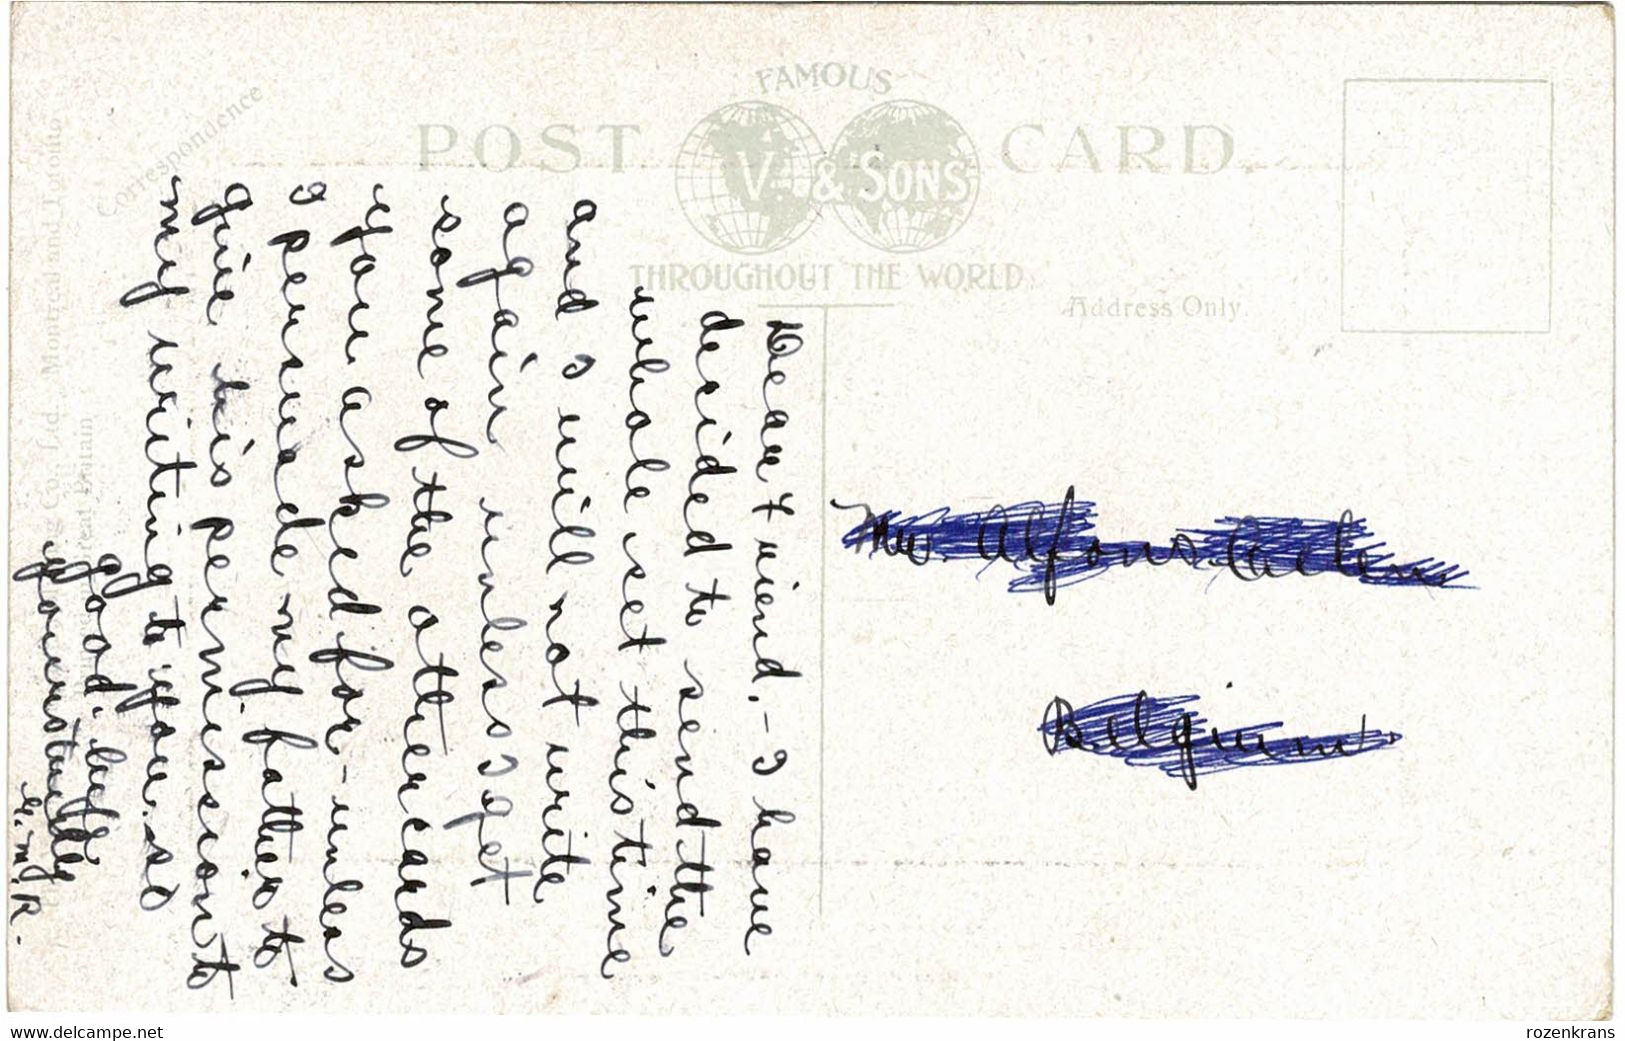 FAMOUS
POST CARD.
V. & SONS
THROUGHOUT THE WORLD.
Correspondence
Address Only.
Dear Friend, - I have
decided to send the
whole set this time
and I will not write
again unless I get
some of the other cards
you asked for - unless
I persuade my father to
give his permission to
my writing to you. so
good-bye
Yours truly
R.
Mr. Alfons
Belgium
Co., Ltd., Montreal and Toronto
Great Britain
www.delcampe.net
rozenkrans